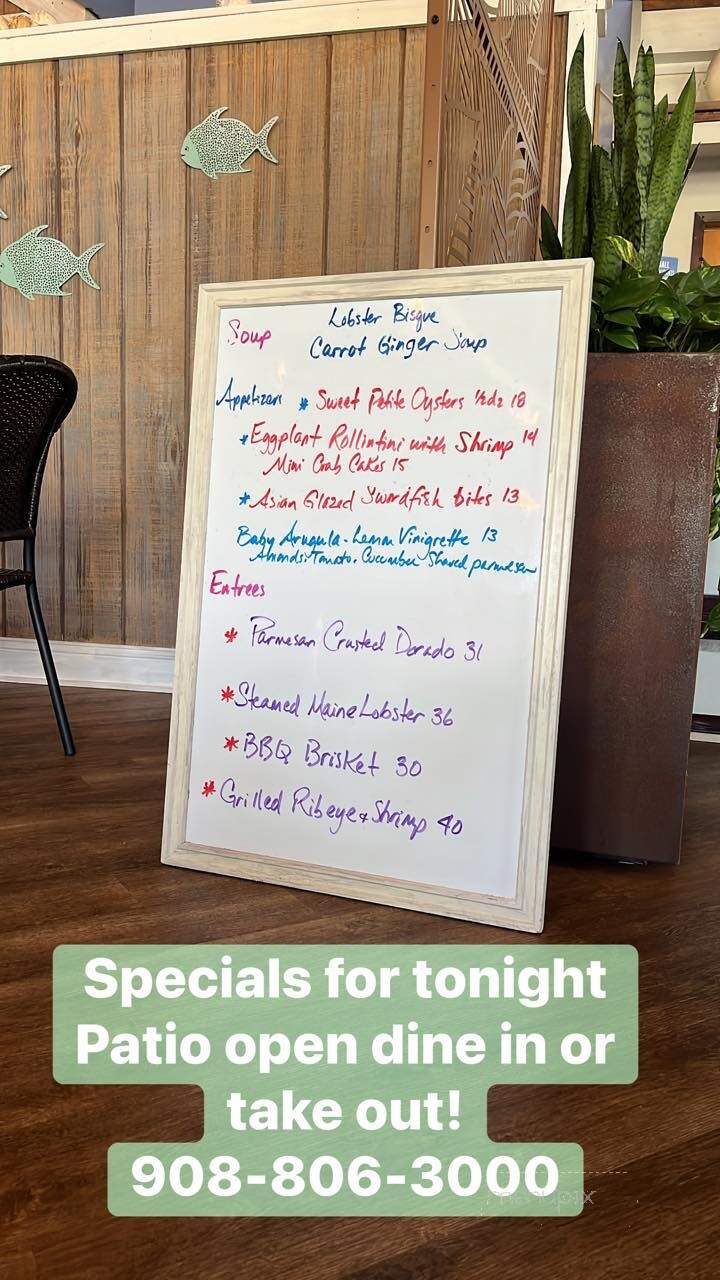 Soup
Lobster Bisque
Carrot Ginger Soup
Appetizers * Sweet Petite Oysters ½dz 18
* Eggplant Rollintini with Shrimp 14
Mini Crab Cakes 15
* Asian Glazed Swordfish bites 13
Baby Arugula - Lemon Vinigrette 13
Almonds. Tomato. Cucumber Shaved parmesan
Entrees
* Parmesan Crusted Dorado 31
* Steamed Maine Lobster 36
* BBQ Brisket 30
* Grilled Ribeye & Shrimp 40
Specials for tonight
Patio open dine in or
take out!
908-806-3000